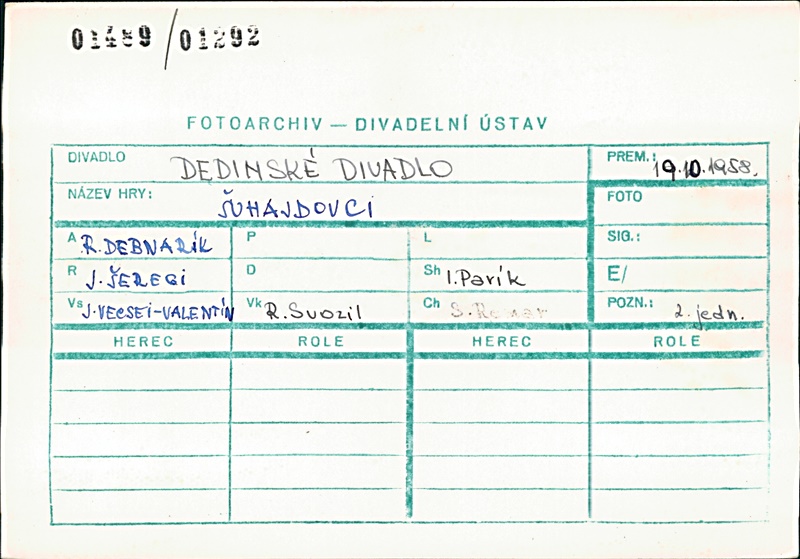 01489/01292
FOTOARCHIV — DIVADELNÍ ÚSTAV
DIVADLO DEDINSKÉ DIVADLO PREM.: 19.10.1958.
NÁZEV HRY: ŠUHAJDOVCI FOTO
A R. DEBNARÍK P L SIG.:
R J. ŠEREGI D Sh I. Parík E/
Vs J. VECSEI-VALENTÍN Vk R. Svozil Ch S. Remar POZN.: 2. jedn.
HEREC ROLE HEREC ROLE